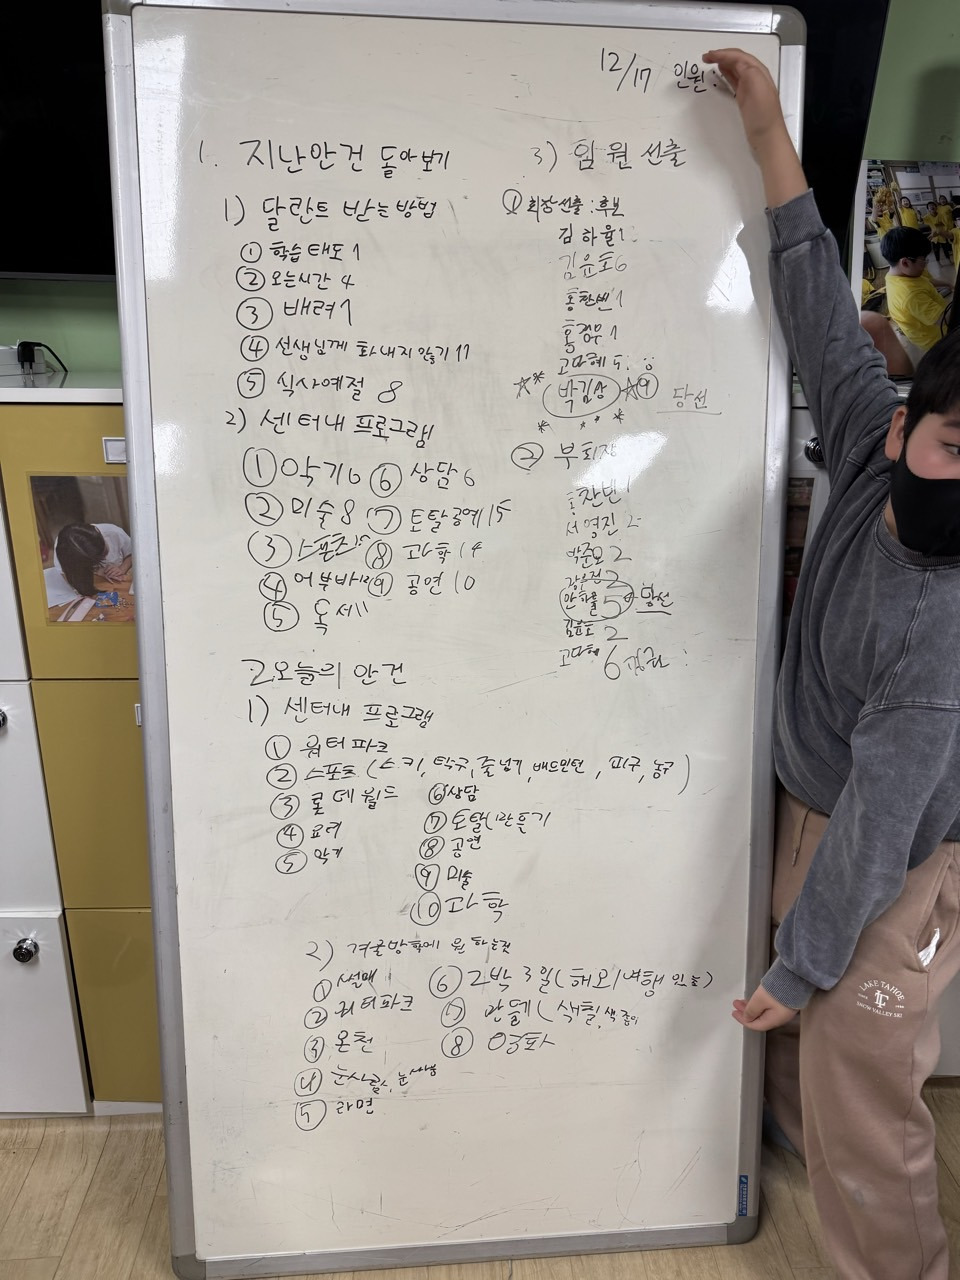 12/17 인원:
1. 지난안건 돌아보기
1) 달란트 받는 방법
① 학습태도 1
② 오는시간 4
③ 배려 1
④ 선생님께 화내지 않기 11
⑤ 식사예절 8
2) 센터내 프로그램
① 악기 6 ⑥ 상담 6
② 미술 8 ⑦ 토탈공예 15
③ 스포츠 ⑧ 과학 14
④ 어부바 ⑨ 공연 10
⑤ 독서 11
3) 임원선출
① 회장선출 : 후보
김하율 1
김윤호 6
홍찬빈 1
홍경우 1
고마혜
박김상 9 당선
② 부회장
홍찬빈 1
서영진 2
박준모 2
안하율 5 당선
김윤호 2
고마혜 6
2. 오늘의 안건
1) 센터내 프로그램
① 워터파크
② 스포츠 (스키, 탁구, 줄넘기, 배드민턴, 피구, 농구)
③ 롯데월드
④ 요리
⑤ 악기
⑥ 상담
⑦ 토탈(만들기
⑧ 공연
⑨ 미술
⑩ 과학
2) 겨울방학에 원하는것
① 썰매
② 워터파크
③ 온천
④ 눈사람, 눈싸움
⑤ 라면
⑥ 2박 3일 (해외여행
⑦ 만들 (색칠, 색종이
⑧ 영화
LAKE TAHOE
SNOW VALLEY SKI